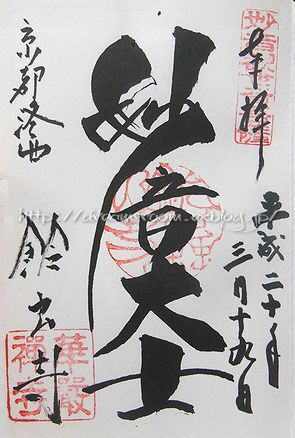 奉拝
平成二十年
三月十九日
妙音大士
京都洛西
鈴虫寺
華厳禅寺
http://dreamroom.exblog.jp/